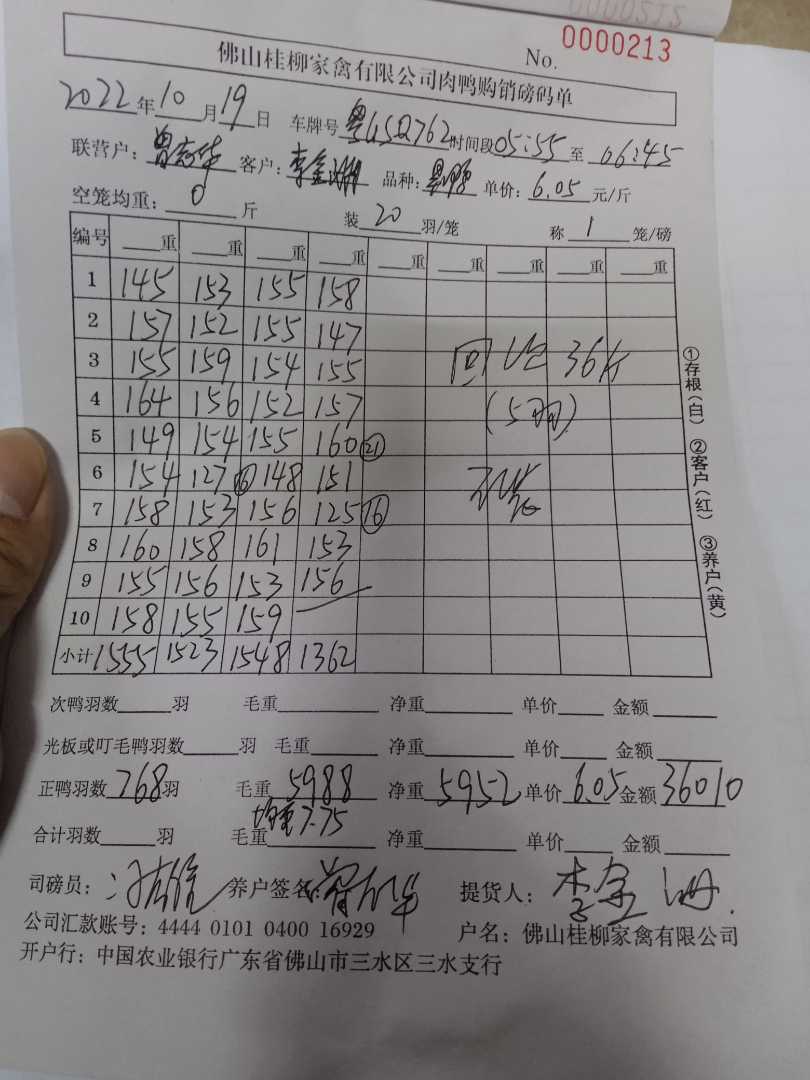 No. 0000213
佛山桂柳家禽有限公司肉鸭购销磅码单
2022年10月19日 车牌号 粤G5Q762 时间段05:55至06:45
联营户: 客户: 李金 品种: 单价: 6.05 元/斤
空笼均重: 0 斤 装 20 羽/笼 称 1 笼/磅
编号 重 重 重 重 重 重 重 重 重
1 145 153 155 158
2 157 152 155 147
3 155 159 154 155 回 36斤
4 164 156 152 157 (5羽)
5 149 154 155 160 ㉑
6 154 127 ⑯ 148 151
7 158 153 156 125 ⑯
8 160 158 161 153
9 155 156 153 156
10 158 155 159
小计 1555 1523 1548 1362
①存根(白) ②客户(红) ③养户(黄)
次鸭羽数 羽 毛重 净重 单价 金额
光板或叮毛鸭羽数 羽 毛重 净重 单价 金额
正鸭羽数 768 羽 毛重 5988 净重 5952 单价 6.05 金额 36010
均重7.75
合计羽数 羽 毛重 净重 单价 金额
司磅员: 养户签名: 提货人: 李金
公司汇款账号: 4444 0101 0400 16929 户名: 佛山桂柳家禽有限公司
开户行: 中国农业银行广东省佛山市三水区三水支行